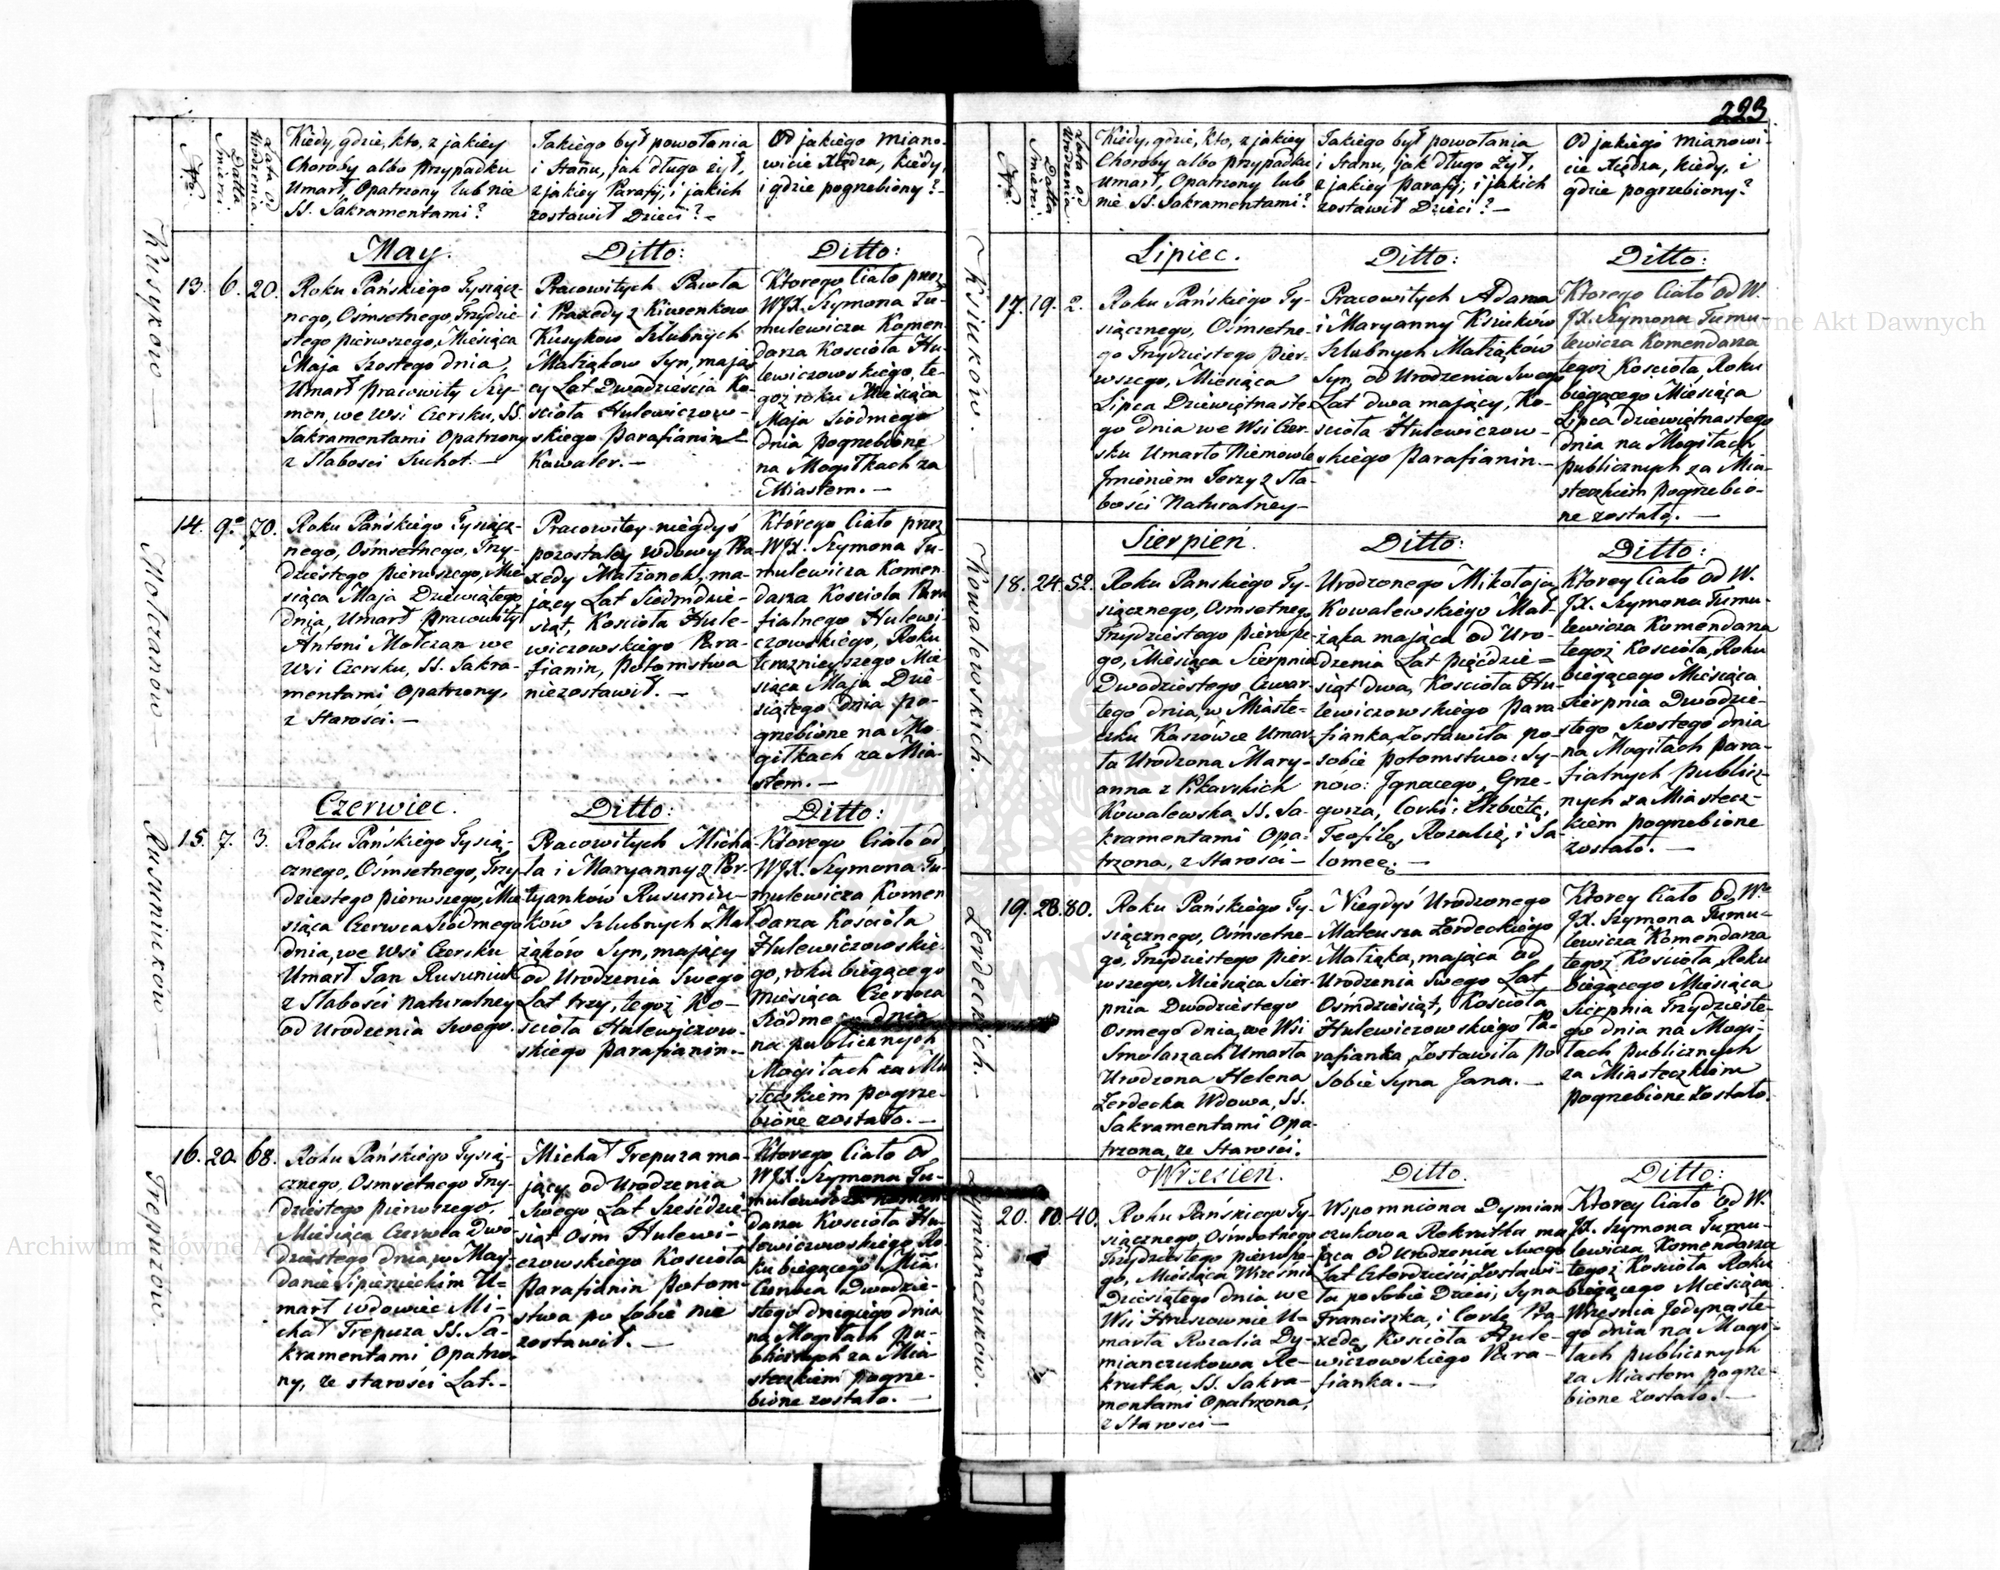 223
N<sup>ro</sup>
Datta Śmierci.
Lata od Urodzenia
Kiedy, gdzie, kto, z jakiey
Choroby albo przypadku
Umarł, Opatrzony lub nie
SS. Sakramentami?
Jakiego był powołania
i Stanu, jak długo żył,
z jakiey Parafij; i jakich
zostawił Dzieci? –
Od jakiego miano-
wicie Xiędza, kiedy,
i gdzie pogrzebiony? –
May.
Ditto:
Ditto:
Kusyków –
13. 6. 20.
Roku Pańskiego Tysiącz-
nego, Ośmsetnego, Trzydzie-
stego pierwszego, Miesiąca
Maja Szostego dnia,
Umarł Pracowity Szy-
mon, we Wsi Czersku, SS.
Sakramentami Opatrzony
z Słabosci Suchot. –
Pracowitych Pawła
i Praxedy z Kiwenkow
Kusykow Szlubnych
Małżąkow Syn, mają-
cy Lat Dwadzieścia Ko-
ścioła Hulewiczow-
skiego Parafianin
Kawaler. –
Ktorego Ciało przez
WJX. Szymona Tu-
mulewicza Komen-
darza Kościoła Hu-
lewiczowskiego, te-
goż roku Miesiąca
Maja Siódmego
dnia pogrzebione
na Mogiłkach za
Miastem. –
Mołczanów –
14. 9.° 70.
Roku Pańskiego Tysiącz-
nego, Ośmsetnego, Trzy-
dziestego pierwszego, Mie-
siąca Maja Dziewiątego
dnia, Umarł Pracowity
Antoni Mołczan we
Wsi Czersku, SS. Sakra-
mentami Opatrzony,
z Starości. –
Pracowitey niegdyś
pozostałey wdowy Pra-
xedy Małżonek, ma-
jący Lat Siedmdzie-
siąt, Kościoła Hule-
wiczowskiego Para-
fianin, potomstwa
niezostawił. –
Którego Ciało przez
WJX. Szymona Tu-
mulewicza Komen-
darza Kościoła Para
fialnego Hulewi-
czowskiego, Roku
teraznieyszego Mie-
siąca Maja Dzie-
siątego dnia po-
grzebione na Mo-
giłkach za Mia-
stem. –
Czerwiec.
Ditto:
Ditto:
Rusuniukow –
15. 7. 3.
Roku Pańskiego Tysią-
cznego, Ośmsetnego, Trzy-
dziestego pierwszego, Mie-
siąca Czerwca Siodmego
dnia, we Wsi Czersku
Umarł Jan Rusuniuk
z Słabosci Naturalney
od Urodzenia Swego.
Pracowitych Micha-
ła i Maryanny z Por-
tyanków Rusuniu-
ków Szlubnych Mał-
żąków Syn, mający
od Urodzenia Swego
Lat trzy, tegoż Ko-
ścioła Hulewiczow-
skiego Parafianin. –
Ktorego Ciało od
WJX. Szymona Tu-
mulewicza Komen
darza Kościoła
Hulewiczowskie-
go, roku bieżącego
Miesiąca Czerwca
Siódme dnia
na publicznych
Mogiłach za Mia
steczkiem pogrze-
bione zostało. –
Trepuzow. –
16. 20. 68.
Roku Pańskiego Tysią-
cznego, Osmsetnego Trzy-
dziestego pierwszego,
Miesiąca Czerwca Dwu-
dziestego dnia, w May-
danie Lipienieckim U-
marł wdowiec Mi-
chał Trepuza SS. Sa-
kramentami Opatrzo-
ny, ze starości Lat. –
Michał Trepuza ma-
jący od Urodzenia
Swego Lat Sześćdzie-
siąt Ośm Hulewi-
czowskiego Kościoła
Parafianin potom-
stwa po Sobie nie
zostawił. –
Ktorego Ciało od
WJX. Szymona Tu-
mulewicza Komen
darza Kościoła Hu-
lewiczowskiego Ro-
ku bieżącego Mia:
Czerwca Dwudzie-
stego drugiego dnia
na Mogiłach pu-
blicznych za Mia-
steczkiem pogrze-
bione zostało. –
N<sup>ro</sup>
Datta Śmierci.
Lata od Urodzenia.
Kiedy, gdzie, kto, z jakiey
Choroby albo przypadku
Umarł, Opatrzony lub
nie SS. Sakramentami?
Jakiego był powołania
i Stanu, jak długo żył,
z jakiey Parafij; i jakich
zostawił Dzieci? –
Od jakiego mianowi-
cie Xiędza, kiedy, i
gdzie pogrzebiony?
Lipiec.
Ditto:
Ditto:
Ksiuków. –
17. 19. 2.
Roku Pańskiego Ty-
siącznego, Ośmsetne-
go Trzydziestego pier-
wszego, Miesiąca
Lipca Dziewiętnaste-
go dnia we Wsi Czer-
sku Umarło Niemowle
Jmieniem Jerzy z Sła-
bości Naturalney –
Pracowitych Adama
i Maryanny Ksiuków
Szlubnych Małżąków
Syn, od Urodzenia Swego
Lat dwa mający, Ko-
ścioła Hulewiczow-
skiego Parafianin. –
Ktorego Ciało od W.
JX. Szymona Tumu-
lewicza Komendarza
tegoż Kościoła, Roku
bieżącego Miesiąca
Lipca dziewiętnastego
dnia na Mogiłach
publicznych za Mia-
steczkiem pogrzebio-
ne zostało. –
Sierpień.
Ditto:
Ditto:
Kowalewskich. –
18. 24. 52.
Roku Panskiego Ty-
siącznego, Osmsetnego
Trzydziestego pierwsze-
go, Miesiąca Sierpnia
Dwudziestego Czwar-
tego dnia, w Miaste-
czku Kaszówce Umar-
ła Urodzona Mary-
anna z Pikarskich
Kowalewska SS. Sa-
kramentami Opa-
trzona, z Starości –
Urodzonego Mikołaja
Kowalewskiego Mał-
żąka mająca od Uro-
dzenia Lat pięćdzie-
siąt dwa, Kościoła Hu-
lewiczowskiego Para-
fianka, Zostawiła po
sobie potomstwo: Sy-
nów: Jgnacego, Grze-
gorza, Corki: Elzbietę,
Teofilę, Rozalię, i Sa-
lomeę. –
Ktorey Ciało od W.
JX. Szymona Tumu-
lewicza Komendarza
tegoż Kościoła, Roku
bieżącego Miesiąca
Sierpnia Dwudzie-
stego Szostego dnia
na Mogiłach Para-
fialnych publicz-
nych za Miastecz-
kiem pogrzebione
zostało. –
Żerdeckich. –
19. 28. 80.
Roku Pańskiego Ty-
siącznego, Ośmsetne-
go, Trzydziestego pier-
wszego, Miesiąca Sier-
pnia Dwudziestego
Osmego dnia, we Wsi
Smolarzach Umarła
Urodzona Helena
Żerdecka Wdowa, SS.
Sakramentami Opa-
trzona, ze Starości.
Niegdyś Urodzonego
Mateusza Żerdeckiego
Małżąka, mająca od
Urodzenia Swego Lat
Osmdziesiąt, Kościoła
Hulewiczowskiego Pa-
rafianka, Zostawiła po
Sobie Syna Jana. –
Ktorey Ciało od W<sup>o</sup>
JX. Szymona Tumu-
lewicza Komendarza
tegoż Kościoła, Roku
bieżącego Miesiąca
Sierpnia Trzydzieste-
go dnia na Mogi-
łach publicznych
za Miasteczkiem
pogrzebione Zostało.
Wrzesień.
Ditto.
Ditto:
Dymianczuków. –
20. 10. 40.
Roku Pańskiego Ty-
siącznego, Ośmsetnego
Trzydziestego pierwsze-
go, Miesiąca Września
Dziesiątego dnia we
Wsi Hruszownie U-
marła Rozalia Dy-
mianczukowa Re-
krutka, SS. Sakra-
mentami Opatrzona,
z Starosci –
Wspomniona Dymian-
czukowa Rekrutka ma-
jąca Od Urodzenia Swego
Lat Czterdzieści, Zostawi-
ła po Sobie Dzieci, Syna
Franciszka, i Corkę Pra-
xedę, Kościoła Hule-
wiczowskiego Para-
fianka. –
Ktorey Ciało od W.
JX. Szymona Tumu-
lewicza Komendarza
tegoż Kościoła Roku
bieżącego Miesiąca
Września Jedynaste-
go dnia na Mogi-
łach publicznych
za Miastem pogrze-
bione Zostało. –
Archiwum Główne Akt Dawnych